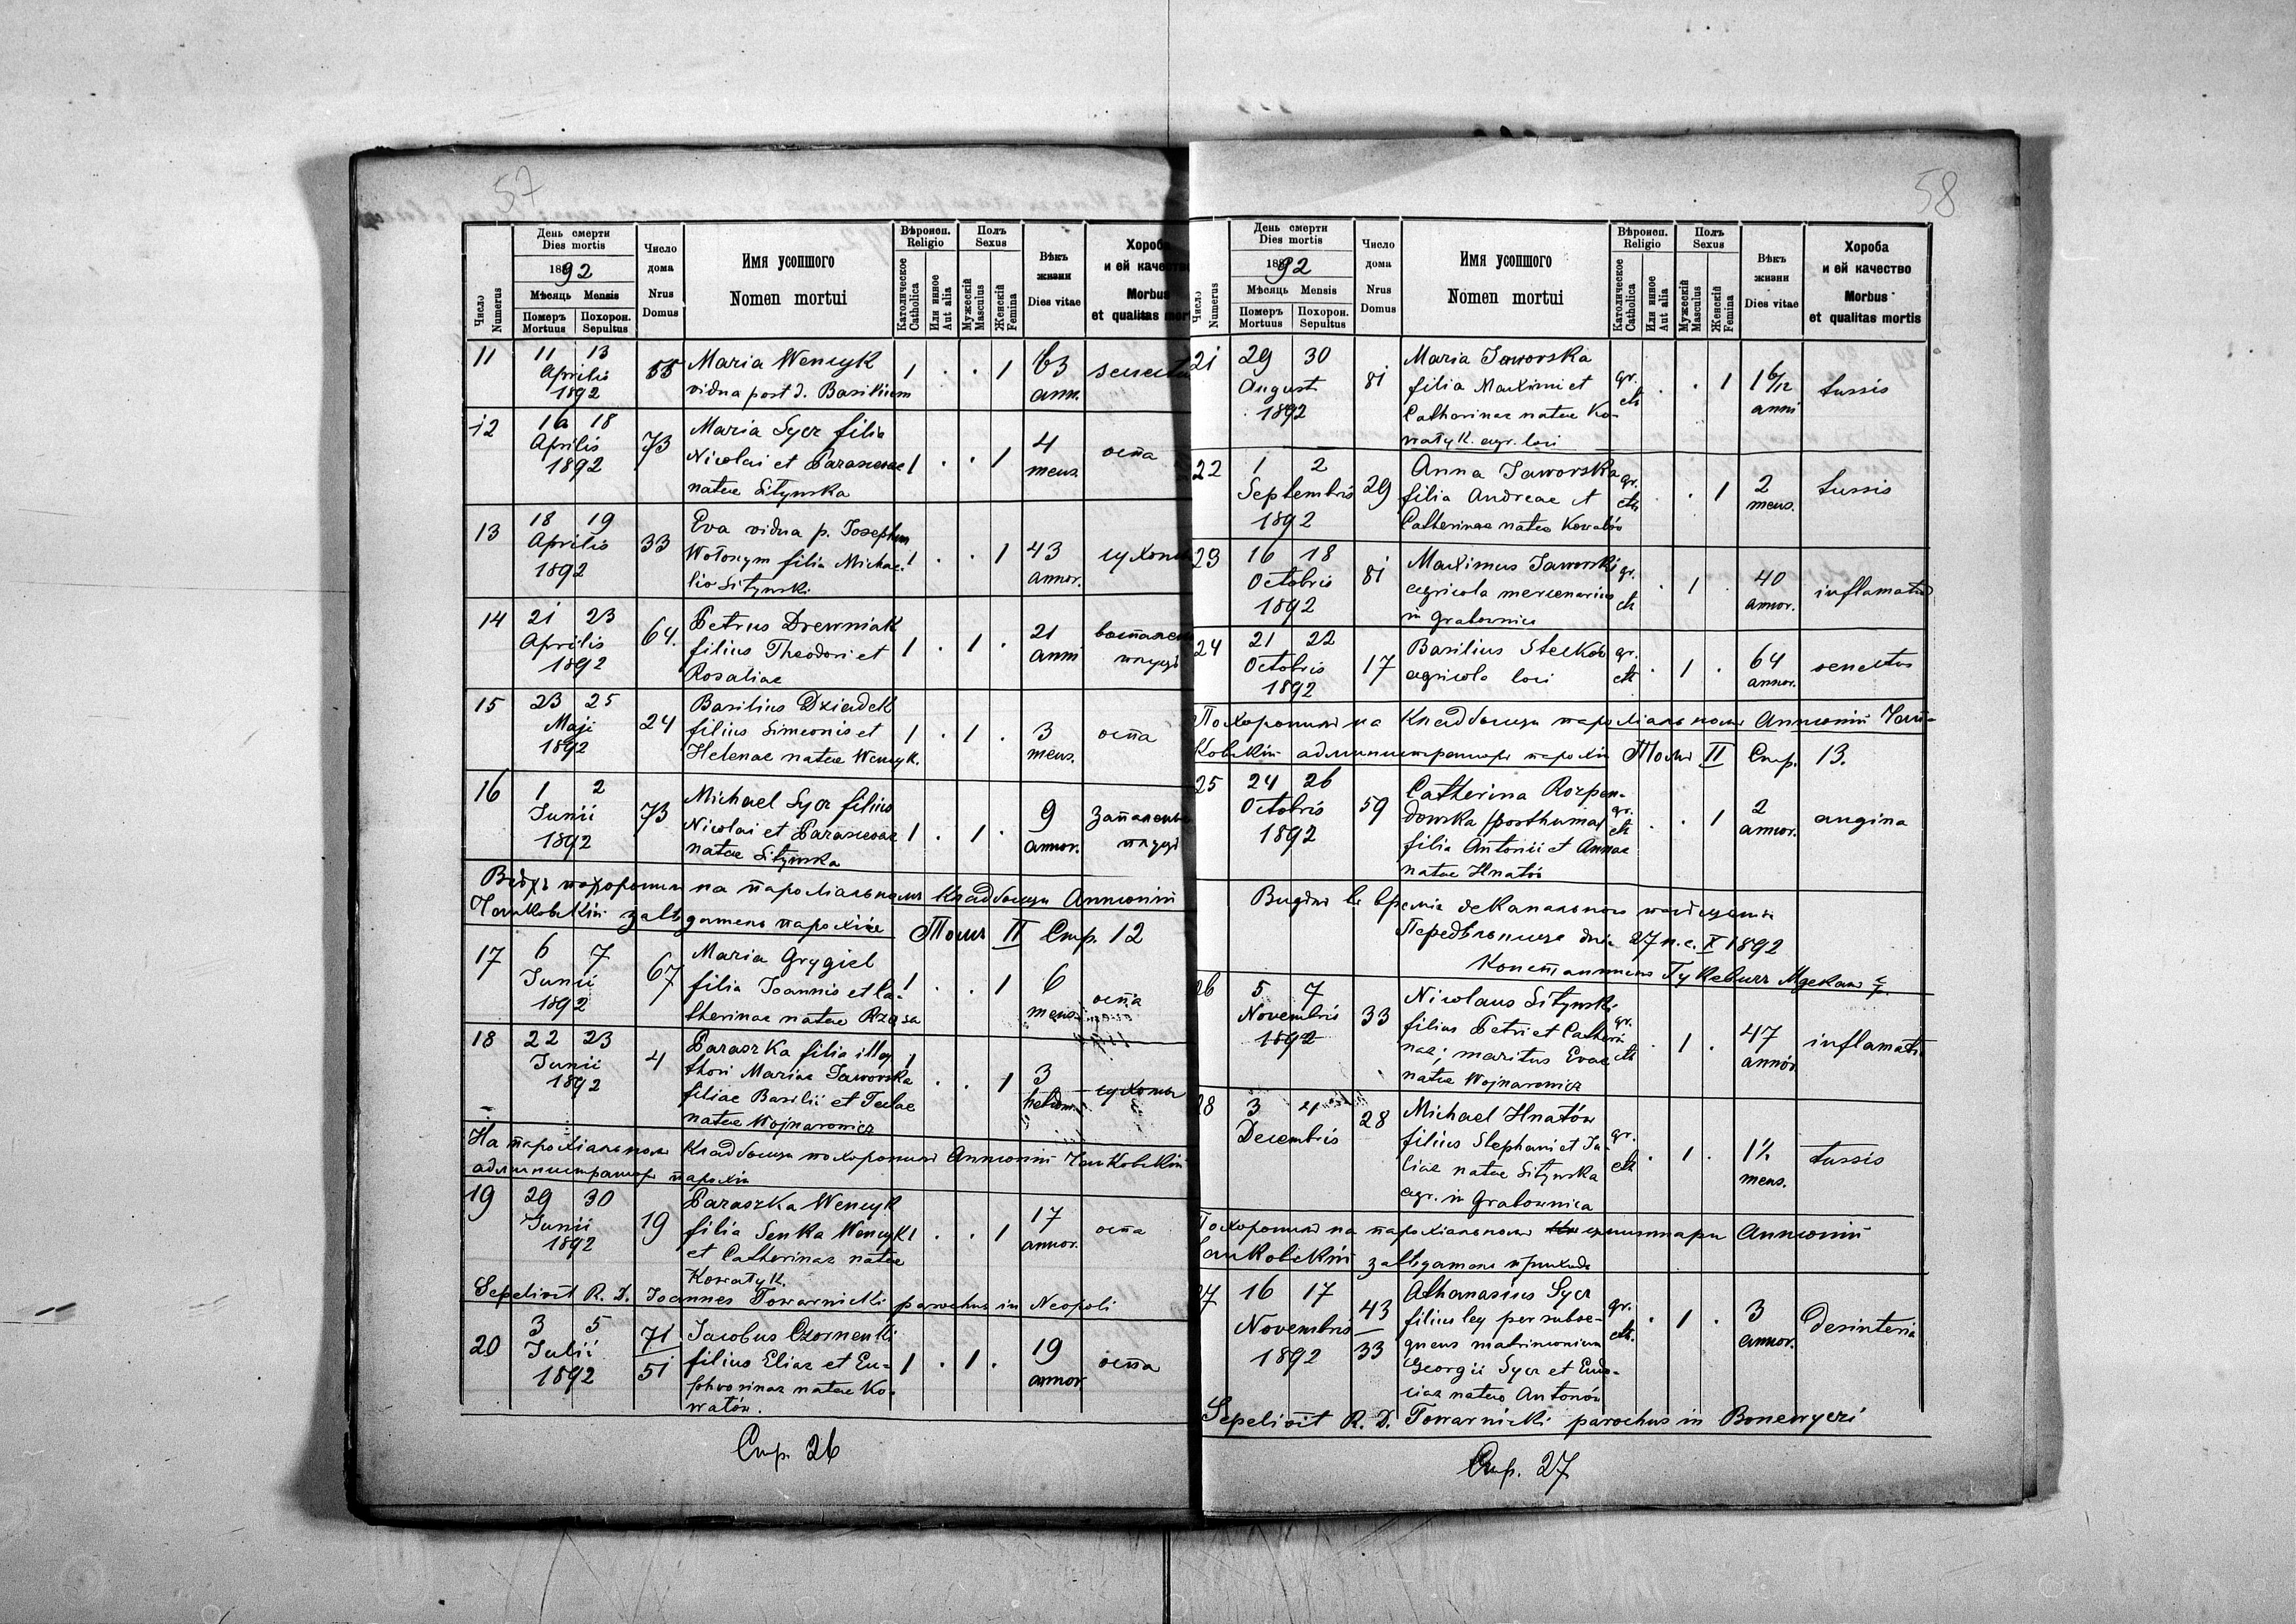 57
День смерти
Dies mortis
1892
Мѣсяць Mensis
Померъ Mortuus
Похорон. Sepultus
Число Numerus
Число дома Nrus Domus
Имя усопшого
Nomen mortui
Вѣроисп. Religio
Католическое Catholica
Или инное Aut alia
Полъ Sexus
Мужескій Masculus
Женскій Femina
Вѣкъ жизни
Dies vitae
Хороба
и ей качество
Morbus
et qualitas mortis
11 11 13 Aprilis 1892 55 Maria Wencyk
vidua post d. Basilium 1 . . 1 63 ann.
12 16 18 Aprilis 1892 73 Maria Syer filia
Nicolai et Parascevae 1 . . 1 4 mens. оспа
natae Sitynska
13 18 19 Aprilis 1892 33 Eva vidua p. Josephum
Wołoszym filia Michae-
lis Sitynski 1 . . 1 43 annor.
14 21 23 Aprilis 1892 64. Petrus Drewniak
filius Theodori et
Rosaliae 1 . 1 . 21 anni
15 23 25 Maji 1892 24 Basilius Dziadek
filius Simeonis et
Helenae natae Wencyk. 1 . 1 . 3 mens. оспа
16 1 2 Junii 1892 73 Michael Syer filius
Nicolai et Parascevae
natae Sitynska 1 . 1 . 9 annor.
на парохіальномъ кладбищи Антоній
парохіи Томъ II Стр. 12
17 6 7 Junii 1892 67 Maria Grygiel
filia Joannis et Ca-
therinae natae Rząsa 1 . . 1 6 mens. оспа
18 22 23 Junii 1892 4 Paraszka filia illeg.
thori Mariae Jaworska
filiae Basilii et Teclae
natae Wojnarowicz 1 . . 1 3 hebdom.
На парохіальномъ кладбищи похоронилъ Антоній
администраторъ парохіи
19 29 30 Junii 1892 19 Paraszka Wencyk
filia Senka Wencyk
et Catherinae natae
Kowatyk. 1 . . 1 17 annor. оспа
Sepelivit R. D. Joannes Towarnicki parochus in Neopoli
20 3 5 Julii 1892 71 51 Jacobus Czornenki
filius Eliae et Eu-
phrosinae natae Ko-
watów. 1 . 1 . 19 annor. оспа
Стр. 26
58
День смерти
Dies mortis
1892
Мѣсяць Mensis
Померъ Mortuus
Похорон. Sepultus
Число Numerus
Число дома Nrus Domus
Имя усопшого
Nomen mortui
Вѣроисп. Religio
Католическое Catholica
Или инное Aut alia
Полъ Sexus
Мужескій Masculus
Женскій Femina
Вѣкъ жизни
Dies vitae
Хороба
и ей качество
Morbus
et qualitas mortis
21 29 30 August 1892 81 Maria Jaworska
filia Maximi et
Catharinae natae Ko-
watyk. agr. loci . . 1 1 6/12 anni tussis
22 1 2 Septembris 1892 29 Anna Jaworska
filia Andreae et
Catherinae natae Kowalów . . 1 2 mens. tussis
23 16 18 Octobris 1892 81 Maximus Jaworski
agricola mercenarius
in Grabownica . 1 40 annor. inflamatio
24 21 22 Octobris 1892 17 Basilius Steckow
agricola loci . 1 . 64 annor. senectus
Похоронилъ на кладбищи парохіальномъ Антоній
администраторъ парохіи Томъ II Стр. 13.
25 24 26 Octobris 1892 59 Catherina Rozpen-
dowska /posthuma/
filia Antonii et Annae
natae Hnatów . . 1 2 annor. angina
27 н. с. X 1892
26 5 7 Novembris 1892 33 Nicolaus Sitynski
filius Petri et Catheri-
nae; maritus Evae
natae Wojnarowicz . 1 . 47 annor.
28 3 4 Decembris 28 Michael Hnatów
filius Stephani et Ju-
liae natae Sitynska
agr. in Grabownica . 1 . 1½ mens. tussis
Похоронилъ на парохіальномъ Антоній
27 16 17 Novembris 1892 43 33 Athanasius Syer
filius leg per subse-
quens matrimonium
Georgii Syer et Eudo-
ciae natae Antonów . 1 . 3 annor. desinteria
Sepelivit R. D. Towarnicki parochus in
Стр. 27